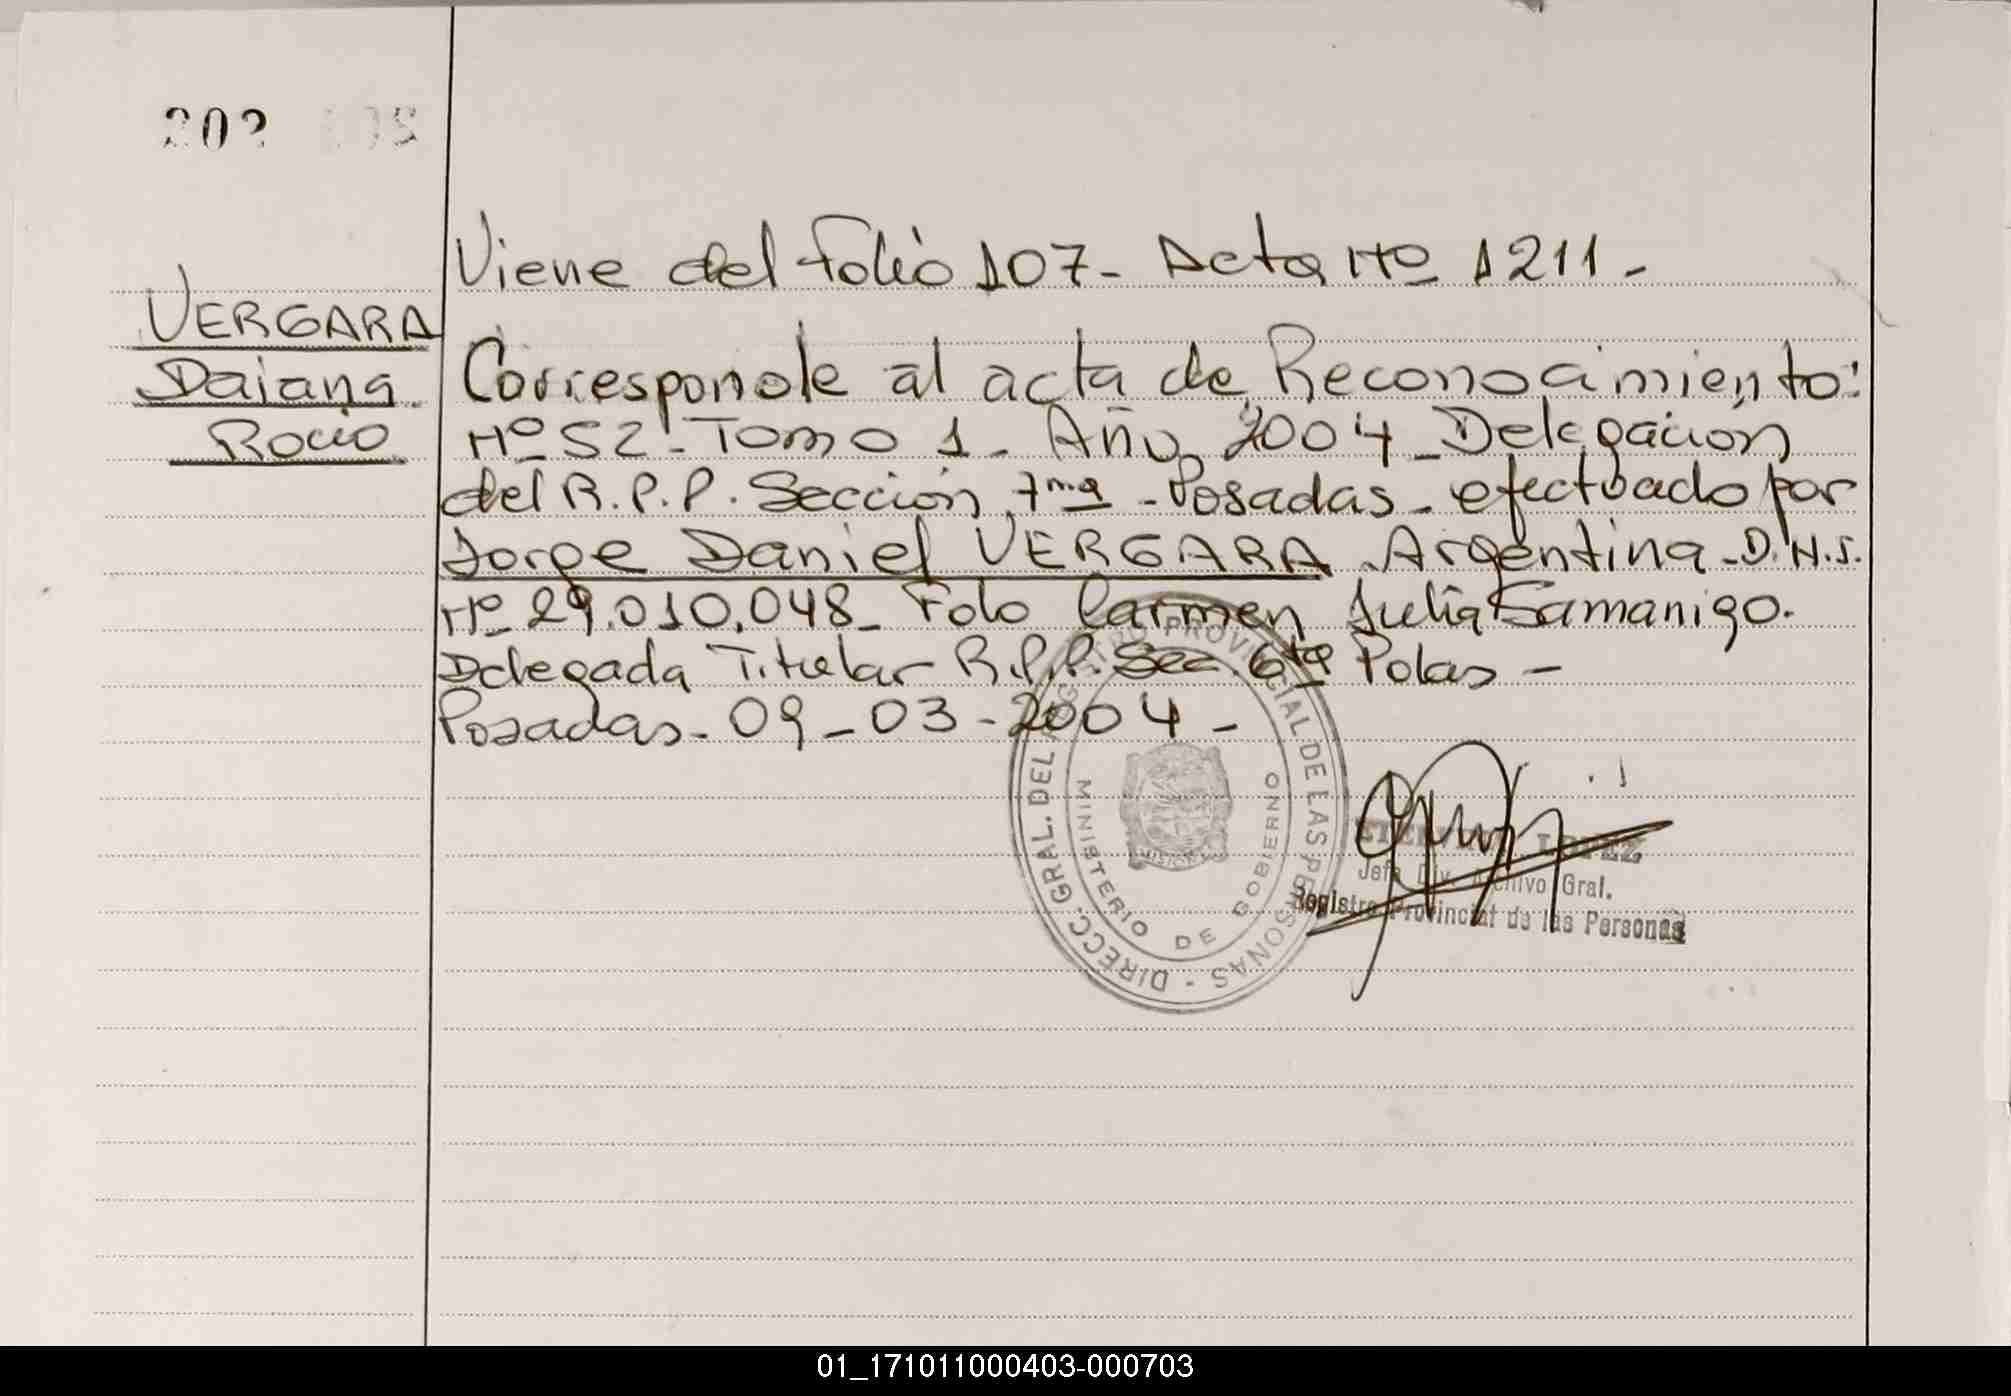 202
Viene del folio 107- Acta Nº 1211-
VERGARA
Daiana
Rocio
Corresponde al acta de Reconocimiento:
Nº 52- Tomo 1- Año 2004- Delegación
del R.P.P. Sección 7ma - Posadas- efectuado por
Jorge Daniel VERGARA Argentina- D.N.I.
Nº 29.010.048- Fdo Carmen Julia Samanigo.
Delegada Titular R.P.P. Sec. 6ta Pdas-
Posadas- 09-03-2004-
DIRECC. GRAL. DEL REGISTRO PROVINCIAL DE LAS PERSONAS -
MINISTERIO DE GOBIERNO
MISIONES
LOPEZ
Jefa Div. Archivo Gral.
Registro Provincial de las Personas
01_171011000403-000703